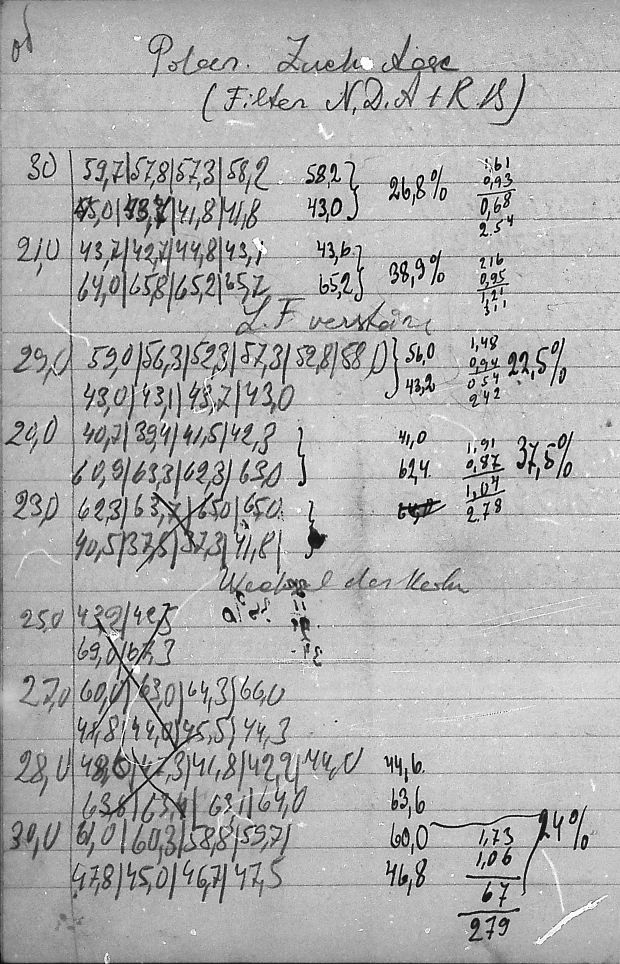 Polar.
(Filter N.D.A + R.B)
30 59,7|57,8|57,3|58,2 58,2 } 26,8% 1,61
45,0|43,7|41,8|41,8 43,0 0,93
0,68
2.54
21,0 43,7|42,7|44,8|43,1 43,6 } 38,9% 2,16
64,0|65,8|65,2|65,7 65,2 0,95
1,21
3,11
L.F
29,0 59,0|56,3|52,3|57,3|52,8|58,0 } 56,0 1,48 22,5%
43,0|43,1|43,7|43,0 43,2 0,94
0,54
2,42
20,0 40,7|39,4|41,5|42,3 } 41,0 1,91 37,5%
60,9|63,3|62,3|63,0 62,4 0,87
1,04
2,78
23,0 62,3|63,7|65,0|65,0 }
40,5|37,8|37,3|41,8|
Wechsel der
25,0 43,9|42,5
69,0|67,3
27,0 60,0|63,0|64,3|66,0
41,8|44,0|45,5|44,3
28,0 48,0|47,3|41,8|42,2|44,0 44,6
63,6|63,4|63,1|64,0 63,6
30,0 61,0|60,3|58,8|59,7| 60,0 1,73 24%
47,8|45,0|46,7|47,5 46,8 1,06
67
279